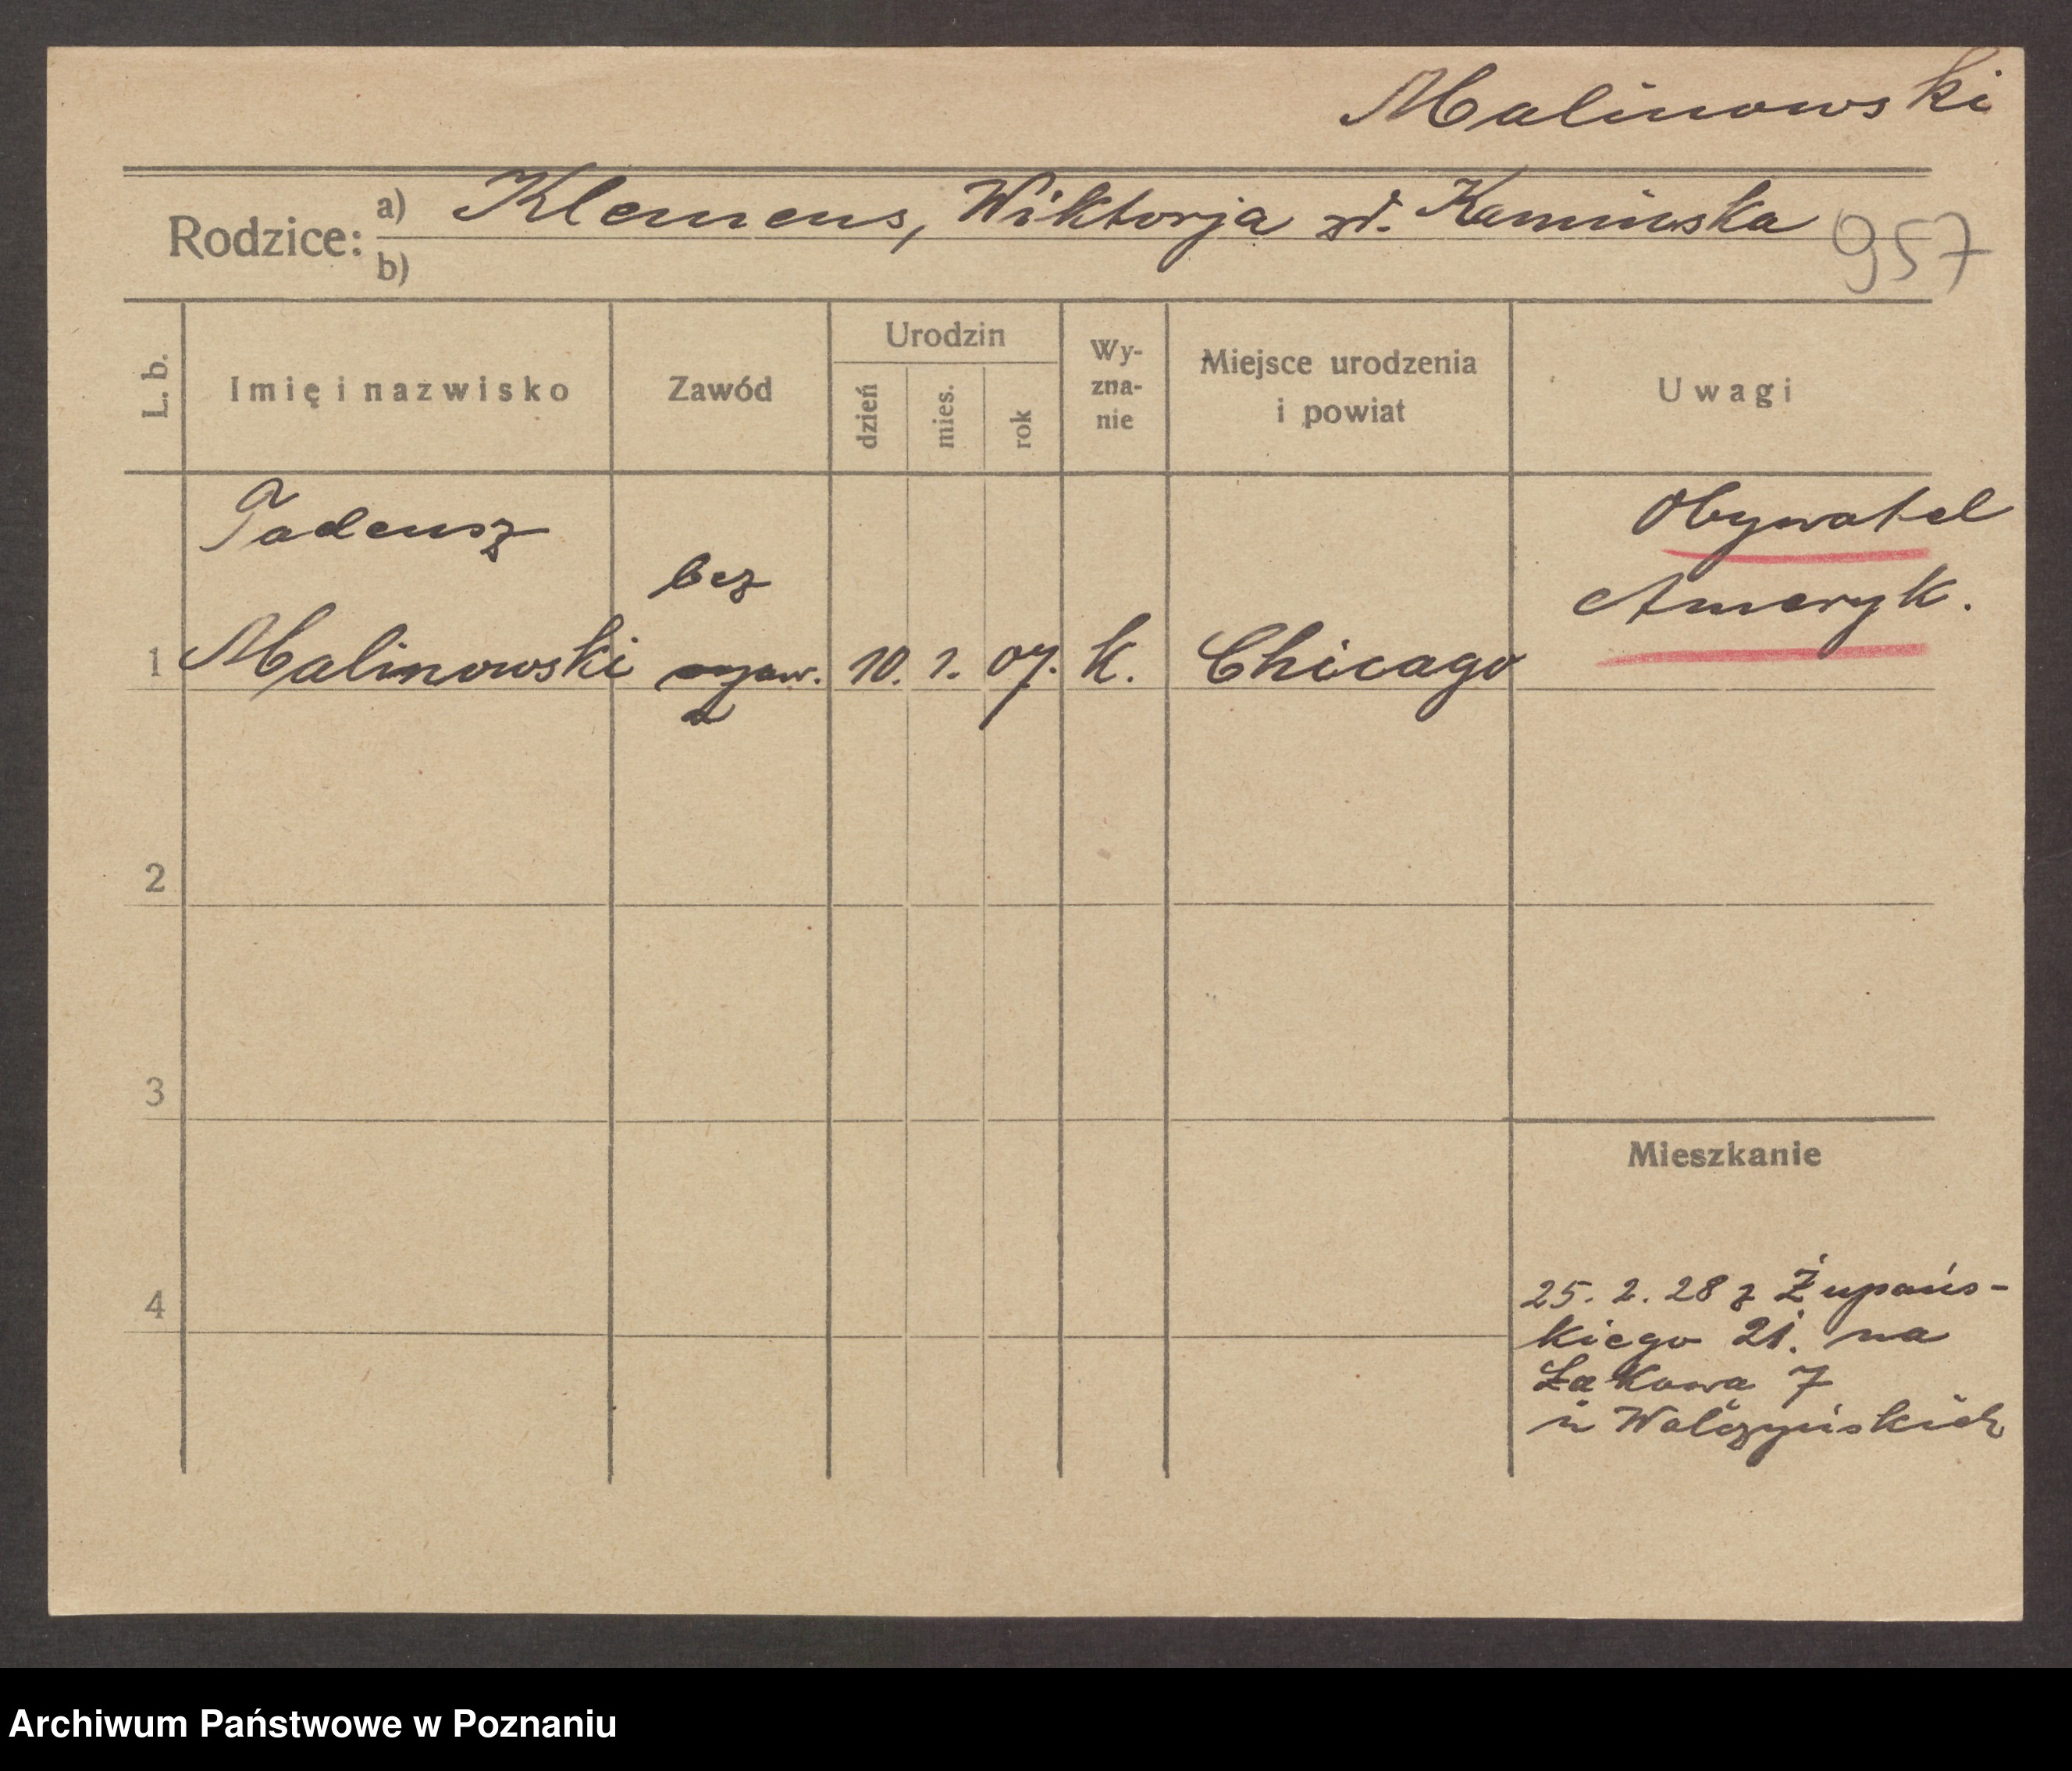 Malinowski
Rodzice: a) Klemens, Wiktorja zd. Kaminska
b)
957
L. b.
Imię i nazwisko
Zawód
Urodzin
dzień
mies.
rok
Wy-
zna-
nie
Miejsce urodzenia
i powiat
Uwagi
Tadeusz
Malinowski
bez
10. 1. 07. k. Chicago
Obywatel
Ameryk.
1
2
3
4
Mieszkanie
25. 2. 28 z Żupańs-
kiego 21. na
Łąkowa 7
u Walczyńskich
Archiwum Państwowe w Poznaniu